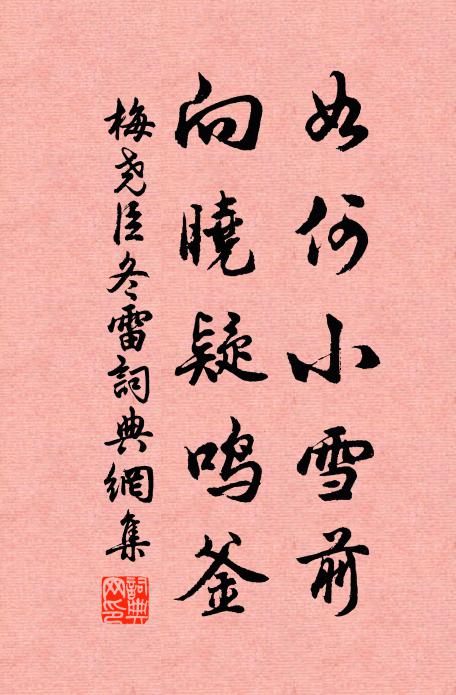 如何小雪前
向曉疑鸣釜
梅尧臣冬雷詞典網集
詞典
网印